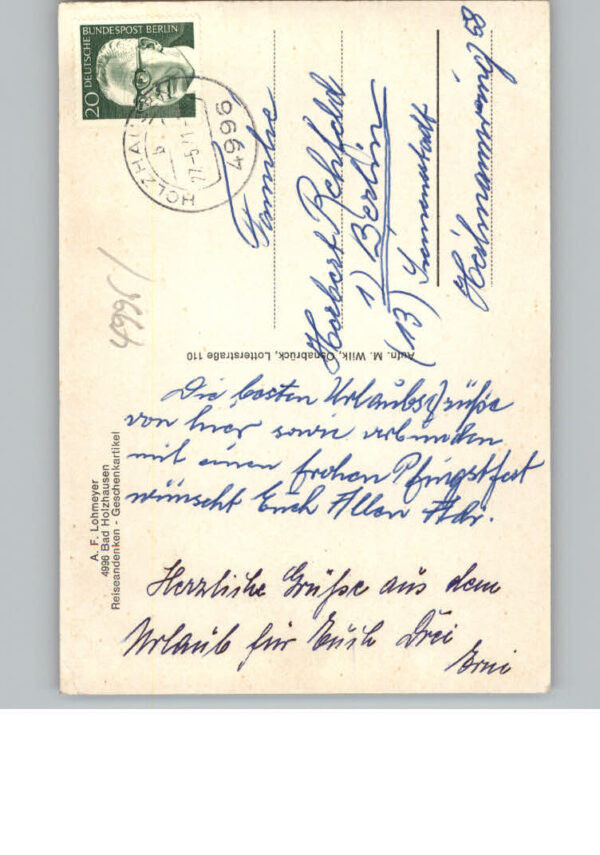 DEUTSCHE BUNDESPOST BERLIN
20
4996
27.-5.71-
b
4995/
Familie
Herbert Rehfeld
1) Berlin
(13) Siemensstadt
Heilmannring 58
Aufn. M. Wilk, Osnabrück, Lotterstraße 110
A. F. Lohmeyer
4996 Bad Holzhausen
Reiseandenken - Geschenkartikel
Die besten Urlaubsgrüße
von hier sowie verbunden
mit einen frohen Pfingstfest
wünscht Euch Allen
Herzliche Grüße aus dem
Urlaub für Euch Drei
Erni